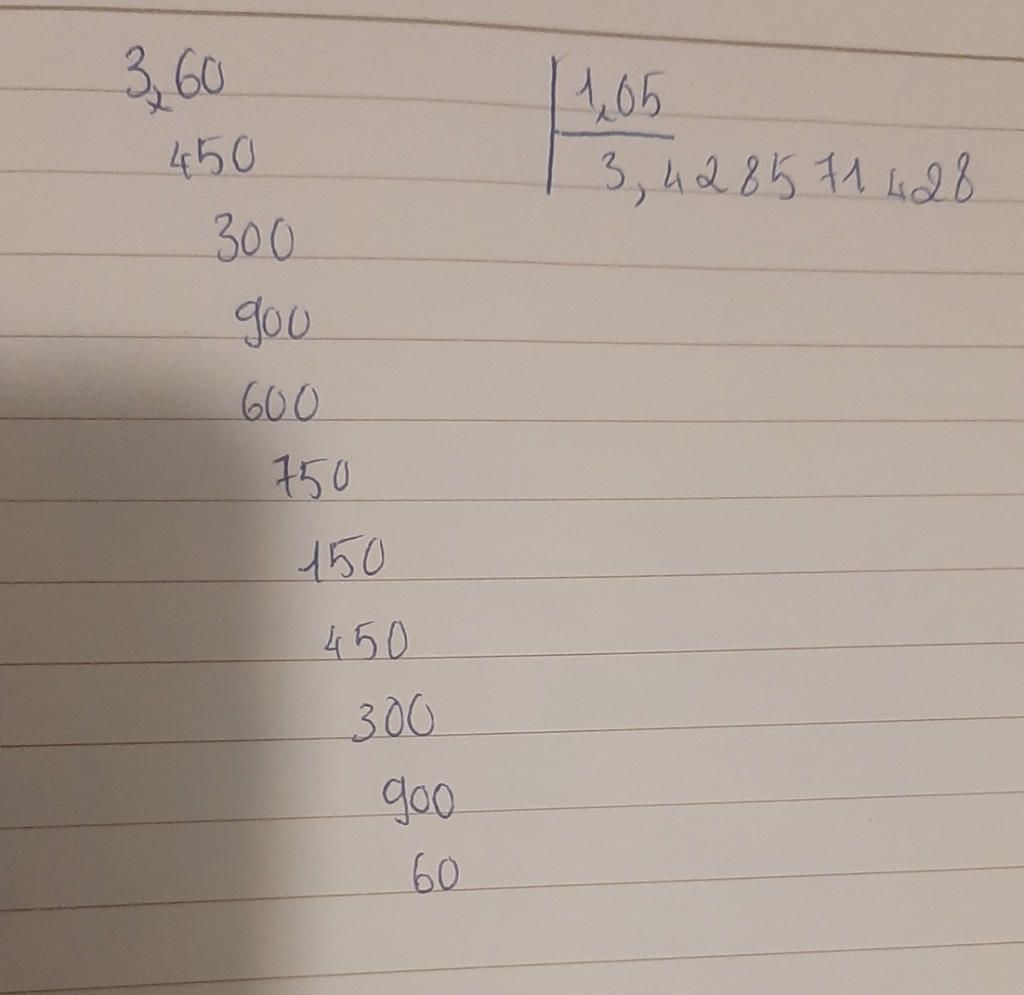 3,60 1,05
450 3,428571428
300
900
600
750
150
450
300
900
60